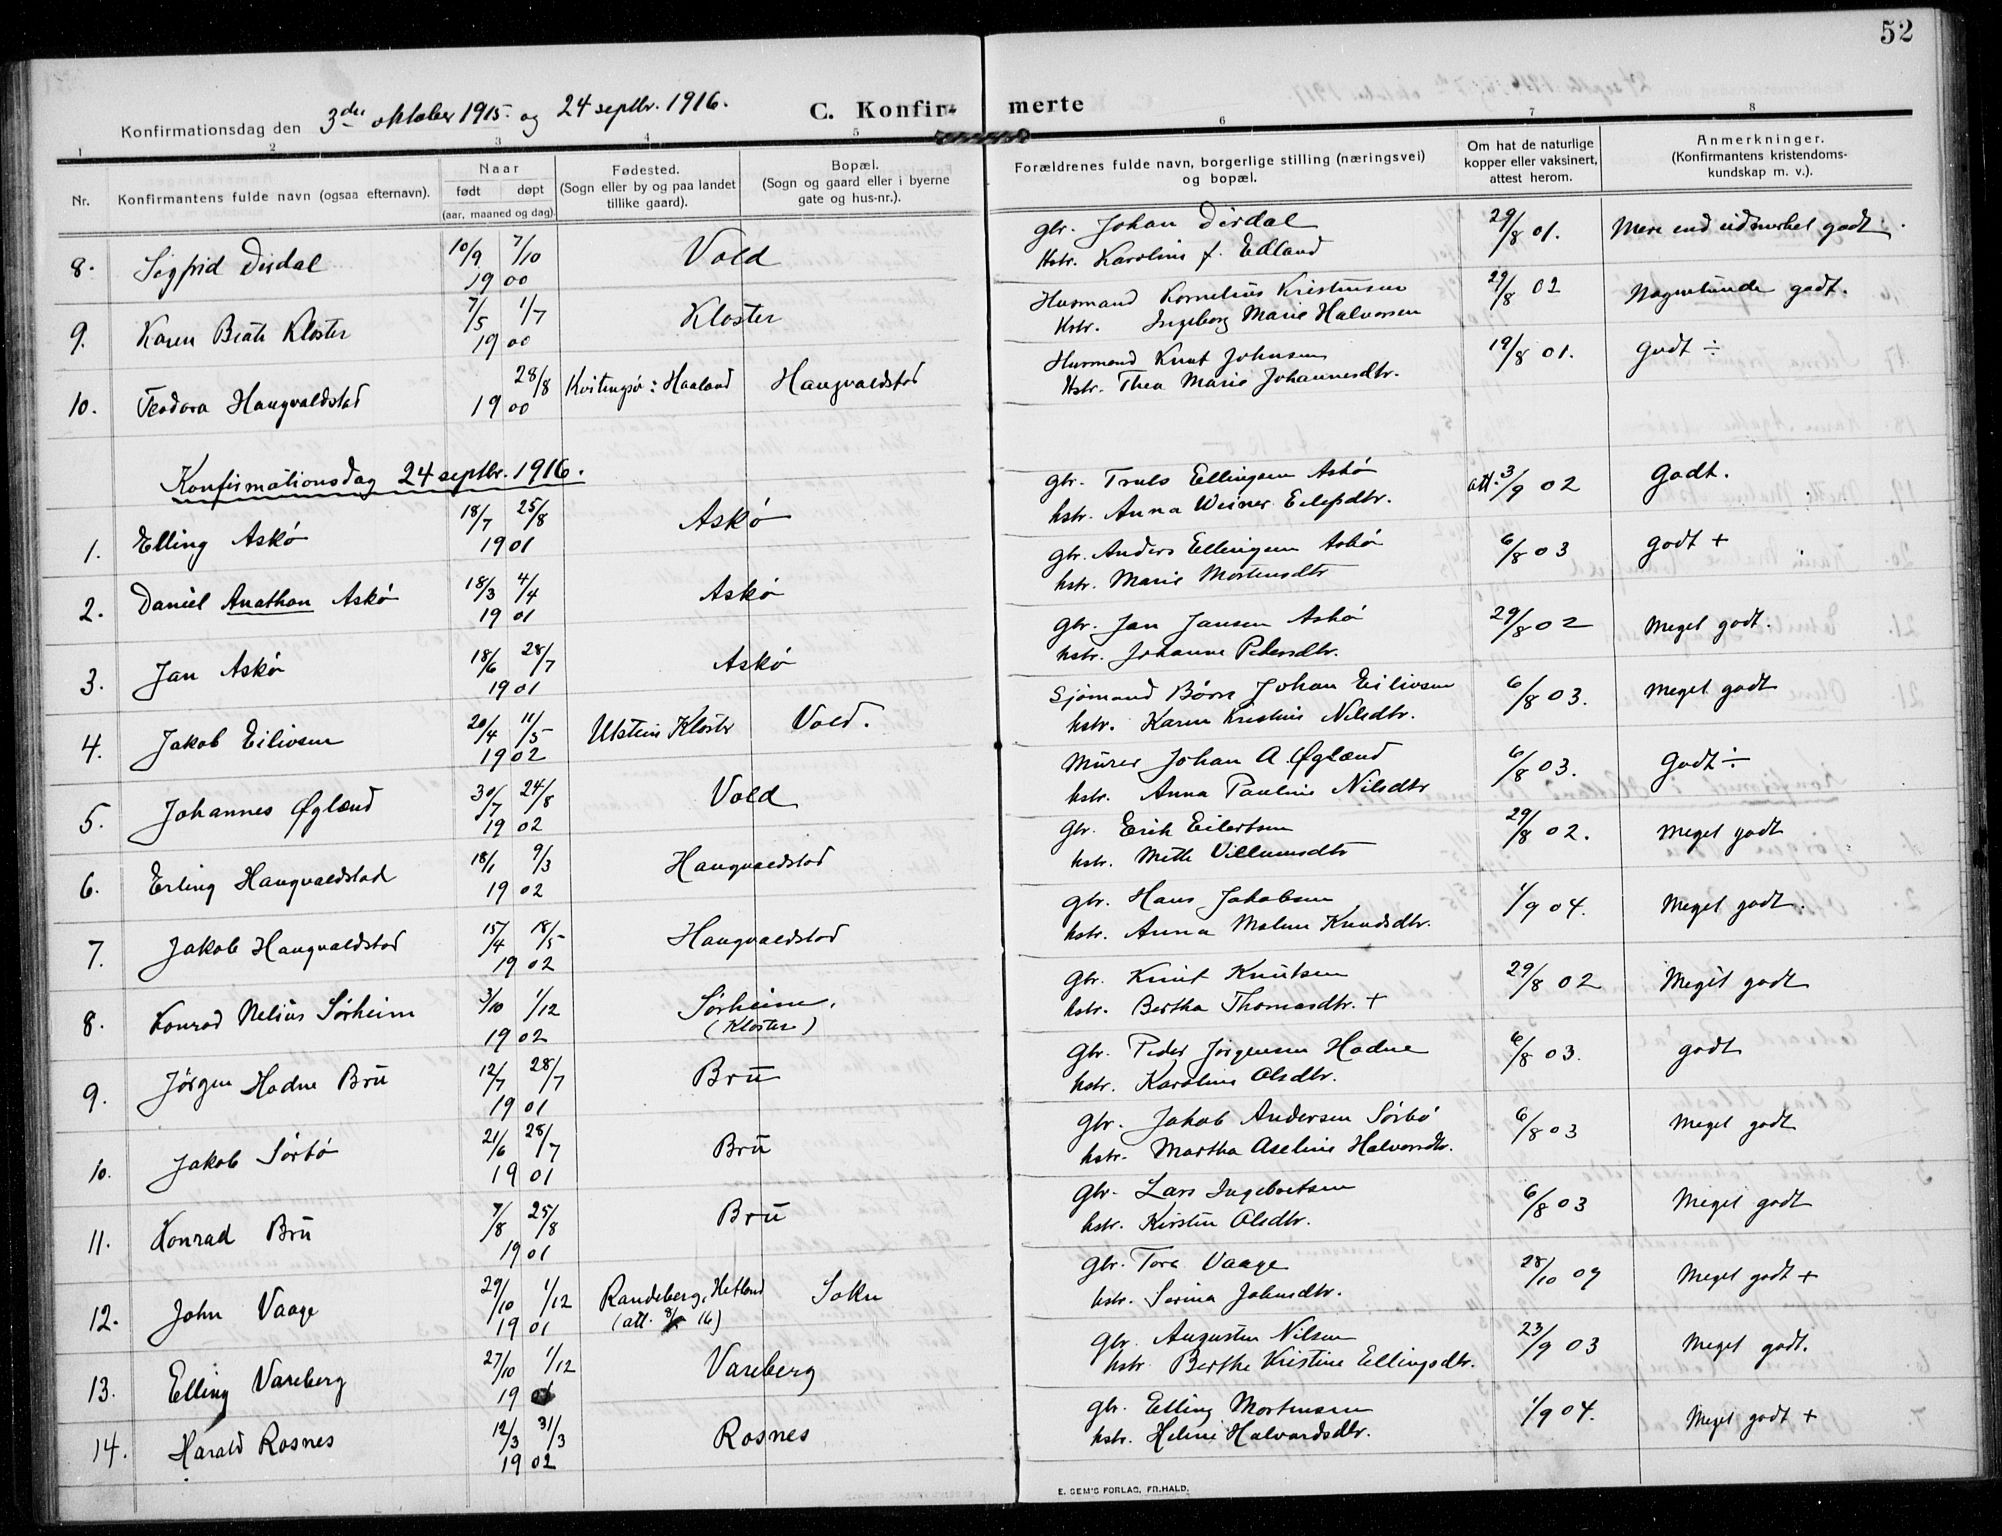 52
Konfirmationsdag den 3die oktober 1915. og 24 septbr. 1916.
C. Konfirmerte
1 2 3 4 5 6 7 8
Nr.
Konfirmantens fulde navn (ogsaa efternavn).
Naar
født døpt
(aar, maaned og dag).
Fødested.
(Sogn eller by og paa landet
tillike gaard).
Bopæl.
(Sogn og gaard eller i byerne
gate og hus-nr.).
Forældrenes fulde navn, borgerlige stilling (næringsvei)
og bopæl.
Om hat de naturlige
kopper eller vaksinert,
attest herom.
Anmerkninger.
(Konfirmantens kristendoms-
kundskap m. v.).
8. Sigfrid Dirdal 10/9 7/10 Vold gbr. Johan Dirdal 29/8 01. Mere end udmerket godt.
1900 Hstr. Karoline f. Edland
9. Karen Beate Kloster 7/5 1/7 Kloster Husmand Kornelius Kristensen 29/8 02 Nogenlunde godt.
1900 Hstr. Ingeborg Marie Halvorsen
10. Teodora Haugvaldstad 28/8 Kvitingsø: Haaland Haugvaldstad Husmand Knut Johnsen 19/8 01. Godt ÷
1900 Hstr. Thea Marie Johannesdtr.
Konfirmationsdag 24 septbr. 1916.
1. Elling Askø 18/7 25/8 Askø gbr. Truls Ellingsen Askø att. 3/9 02 Godt.
1901 hstr. Anna Weiner Eilefsdtr.
2. Daniel Anathon Askø 18/3 4/4 Askø gbr. Anders Ellingsen Askø 6/8 03 godt +
1901 hstr. Marie Mortensdtr
3. Jan Askø 18/6 28/7 Askø Gbr. Jan Jansen Askø 29/8 02 Meget godt.
1901 hstr. Johanne Petersdtr.
4. Jakob Eilivsen 20/4 11/5 Utstein Kloster Vold. Sjømand Børre Johan Eilivsen 6/8 03. Meget godt
1902 hstr. Karen Kristine Nilsdtr.
5. Johannes Øglænd 30/7 24/8 Vold Murer Johan A. Øglænd 6/8 03. Godt ÷
1902 hstr. Anna Pauline Nilsdtr
6. Erling Haugvaldstad 18/1 9/3 Haugvaldstad Gbr. Erik Eilertsen 29/8 02. Meget godt
1902 hstr. Mette Villumsdtr
7. Jakob Haugvaldstad 15/4 18/5 Haugvaldstad gbr. Hans Jakobsen 1/9 04. Meget godt.
1902 hstr. Anna Malene Knudsdtr.
8. Konrad Nelius Sørheim 3/10 1/12 Sørheim. Gbr. Knut Knutsen 29/8 02 Meget godt
1902 (Kloster) hstr. Bertha Thomasdtr. +
9. Jørgen Hodne Bru 12/7 28/7 Bru Gbr. Peder Jørgensen Hodne 6/8 03. godt
1901 hstr. Karoline Olsdtr.
10. Jakob Sørbø 21/6 28/7 Bru Gbr. Jakob Andersen Sørbø 6/8 03 Meget godt
1901 hstr. Martha Aseline Halvorsdtr.
11. Konrad Bru 7/8 25/8 Bru Gbr. Lars Ingebretsen 6/8 03 Meget godt
1901 hstr. Kirstin Olsdtr.
12. John Vaage 29/10 1/12 Randeberg, Hetland Sokn Gbr. Tore Vaage 28/10 09 Meget godt +
1901 (att. 16) hstr. Serina Johnsdtr.
13. Elling Vareberg 27/10 1/12 Vareberg Gbr. Augustin Nilsen 23/9 03 Meget godt.
1901 hstr. Berthe Kristine Ellingsdtr.
14. Harald Rosnes 12/3 31/3 Rosnes gbr. Elling Mortensen 1/9 04. Meget godt +
1902 hstr. Heline Halvardsdtr.
E. SEM'S FORLAG, FR.HALD.